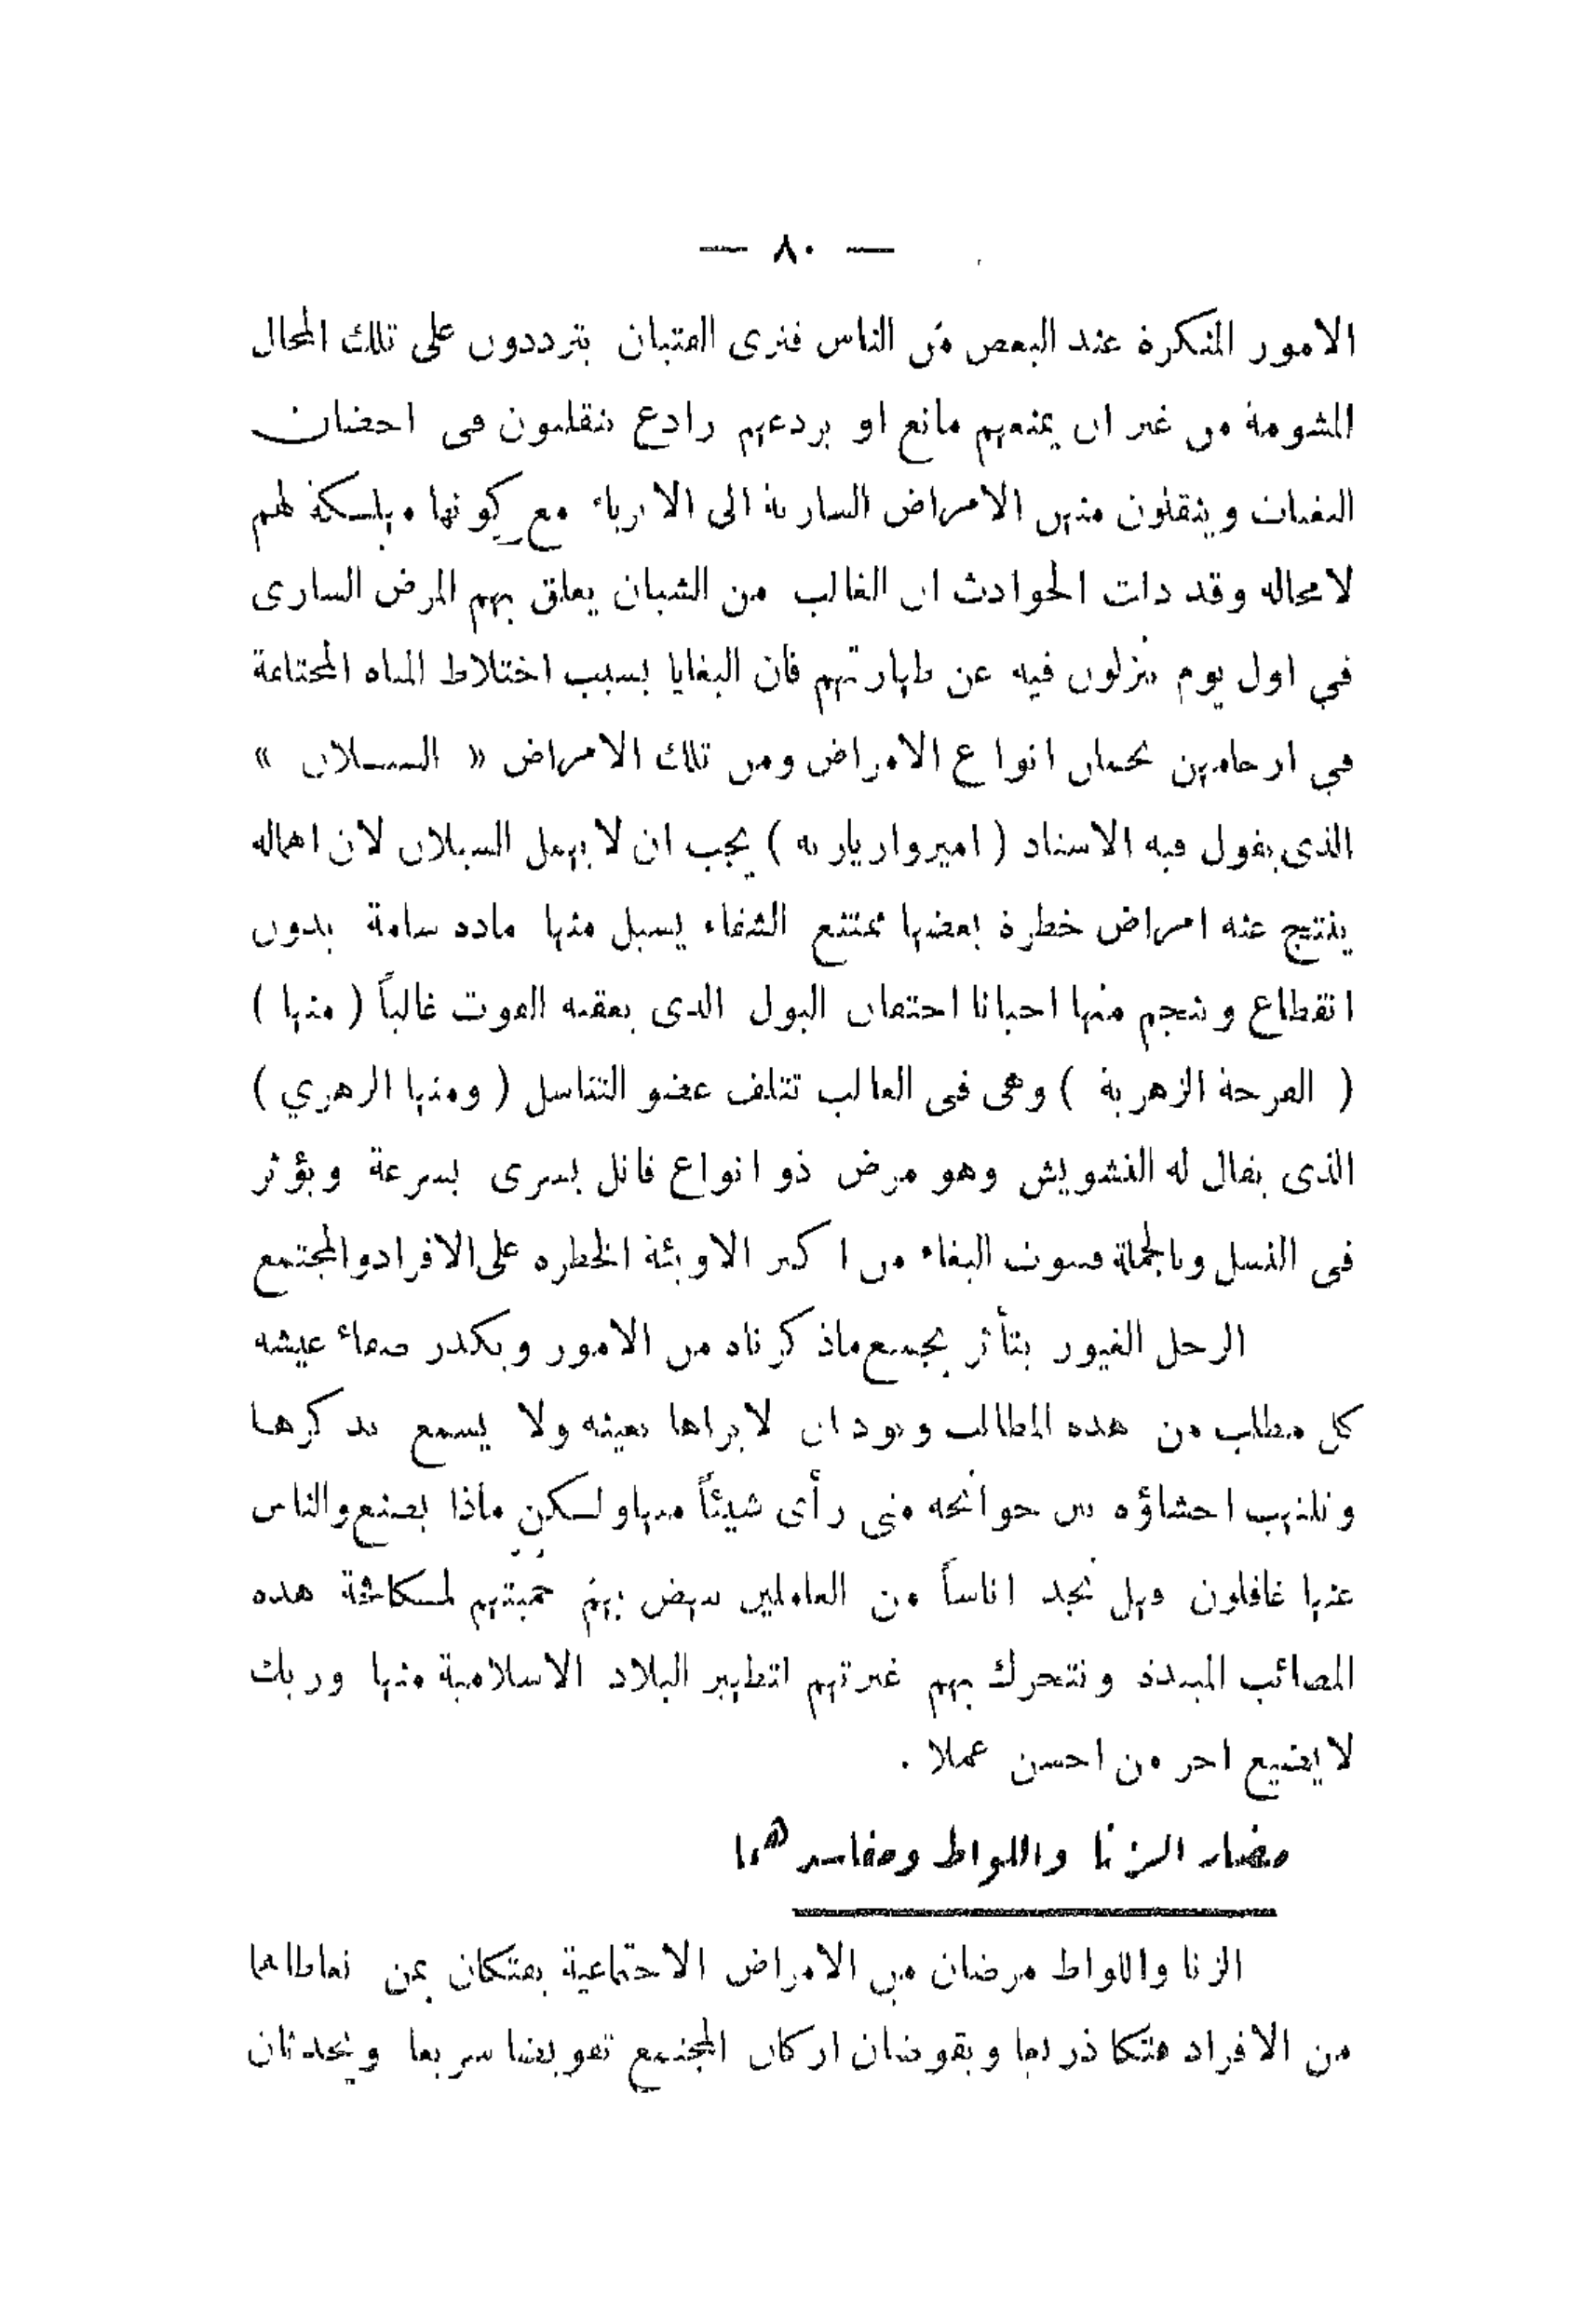 — ٨٠ —
الامور المنكرة عند البعض من الناس فترى الفتيان يترددون على تلك المحال
المشومة من غير ان يمنعهم مانع او يردعهم رادع يتقلبون في احضان
البغيات وينقلون منهن الامراض السارية الى الابرياء مع كونها مهلكة لهم
لامحاله وقد دلت الحوادث ان الغالب من الشبان يعلق بهم المرض السارى
في اول يوم ينزلون فيه عن طهارتهم فان البغايا بسبب اختلاط المياه المختلفة
في ارحامهن يحملن انواع الامراض ومن تلك الامراض « السيلان »
الذى يقول فيه الاستاد ( اميرواريار يه ) يجب ان لا يهمل السيلان لان اهماله
ينتج عنه امراض خطرة بعضها ممتنع الشفاء يسيل منها ماده سامة بدون
انقطاع وينجم منها احيانا احتقان البول الذى يعقبه الموت غالباً ( منها )
( القرحة الزهرية ) وهى فى الغالب تتلف عضو التناسل ( ومنها الزهري )
الذى يقال له التشويش وهو مرض ذو انواع قاتل يسرى بسرعة ويؤثر
فى النسل وبالجملة فبيوت البغاء من اكبر الاوبئة الخطره على الافراد والمجتمع
الرجل الغيور يتأثر بجميع ماذكرناه من الامور ويكدر صفاء عيشه
كل مطلب من هذه المطالب ويود ان لا يراها بعينه ولا يسمع بذكرها
وتلتهب احشاؤه بين جوانحه متى رأى شيئاً منها ولكن ماذا يصنع والناس
عنها غافلون وهل نجد اناساً من العاملين تنهض بهم حميتهم لمكافحة هذه
المصائب المبيدة وتتحرك بهم غيرتهم لتطهير البلاد الاسلامية منها وربك
لا يضيع اجر من احسن عملا .
مضار الزنا واللواط ومفاسدهما
الزنا واللواط مرضان من الامراض الاجتماعية يفتكان بمن تعاطاهما
من الافراد فتكا ذريعا ويقوضان اركان المجتمع تقويضا سريعا ويحدثان